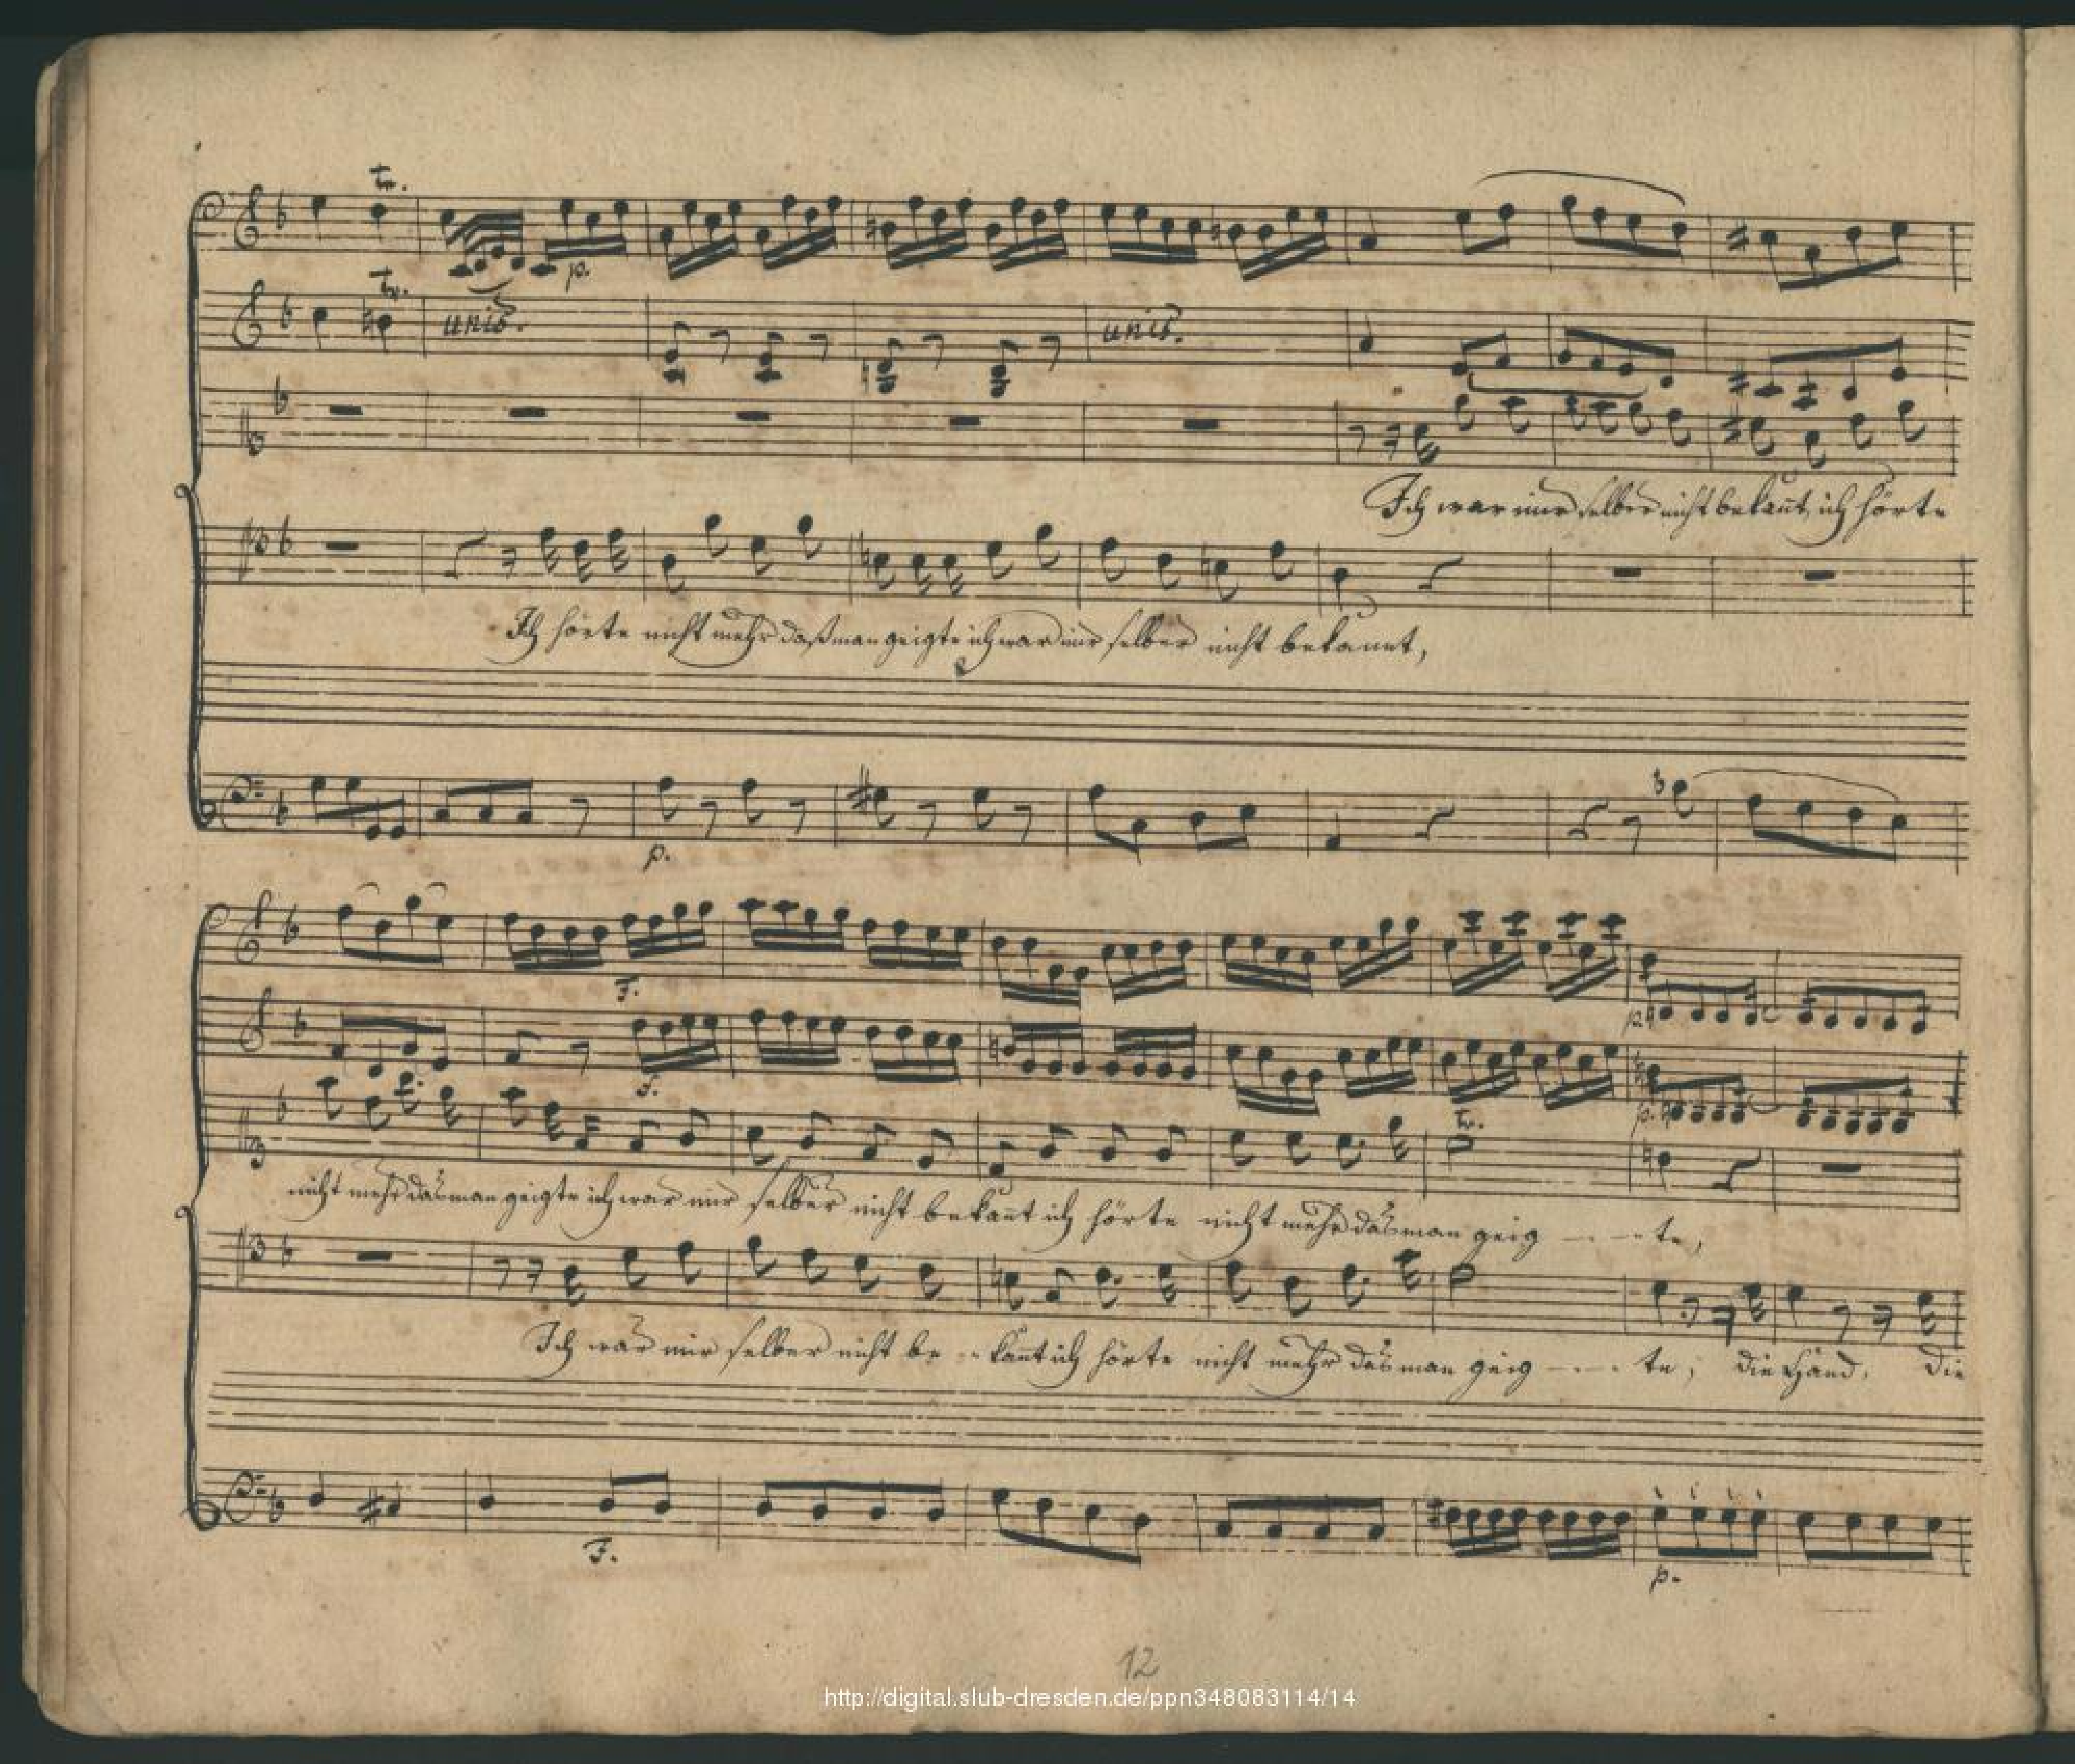 tr.
p.
tr.
unis.
unis.
Ich war mir selber nicht bekan̄t, ich hörte
Ich hörte nicht mehr daß man geigte ich war mir selber nicht bekannt,
p.
F.
f.
p.
p.
tr.
nicht mehr das man geigte ich war mir selber nicht bekan̄t ich hörte nicht mehr das man geig - - te,
Ich war mir selber nicht be - - kan̄t ich hörte nicht mehr das man geig - - - te, die Händ, die
F.
p.
12
http://digital.slub-dresden.de/ppn348083114/14